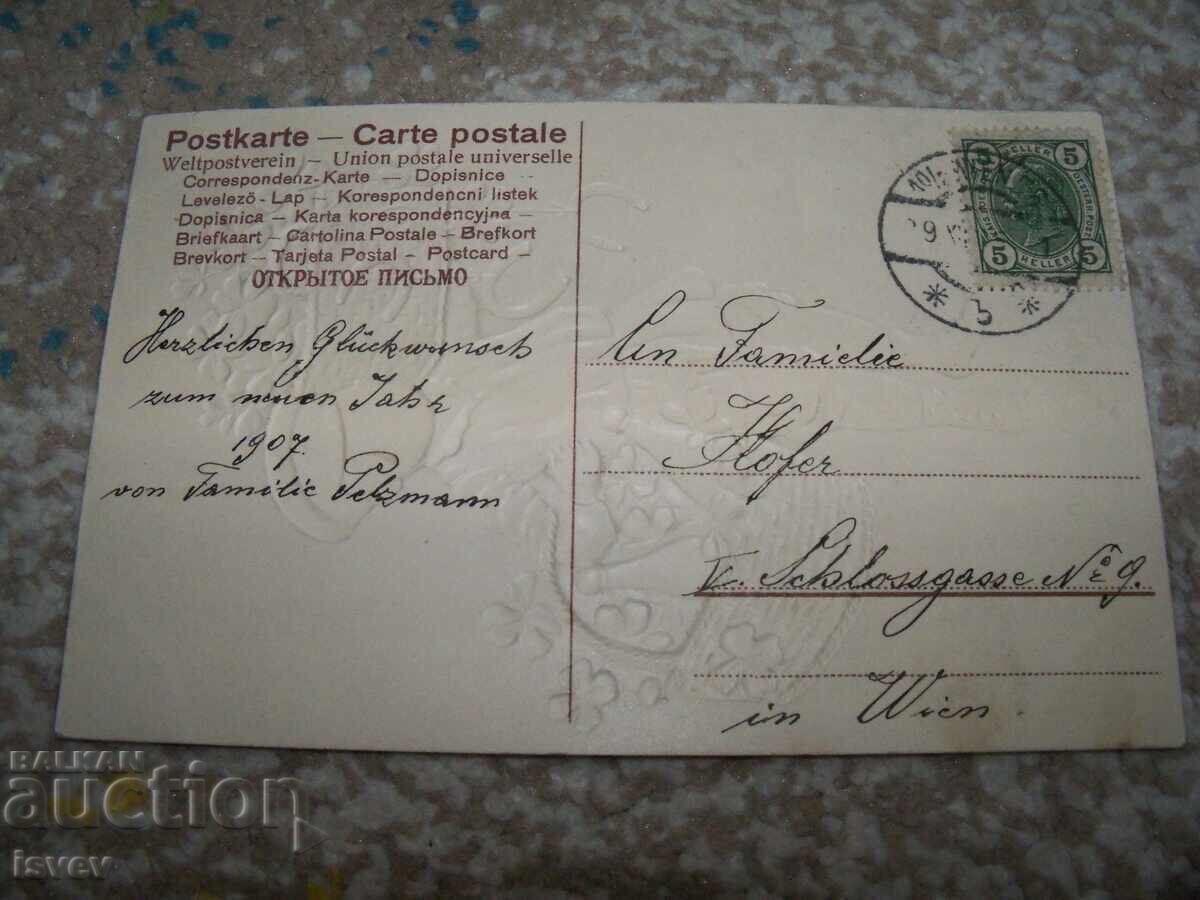 Postkarte — Carte postale
Weltpostverein — Union postale universelle
Correspondenz-Karte — Dopisnice
Levelező-Lap — Korespondencni listek
Dopisnica — Karta korespondencyjna —
Briefkaart — Cartolina Postale — Brefkort
Brevkort — Tarjeta Postal — Postcard —
ОТКРЫТОЕ ПИСЬМО
Herzlichen Glückwunsch
zum neuen Jahr
1907.
von Familie Pelzmann
5 HELLER 5
5 HELLER 5
An Familie
Hofer
V. Schlossgasse No 9.
in Wien.
BALKAN
auction
isvev